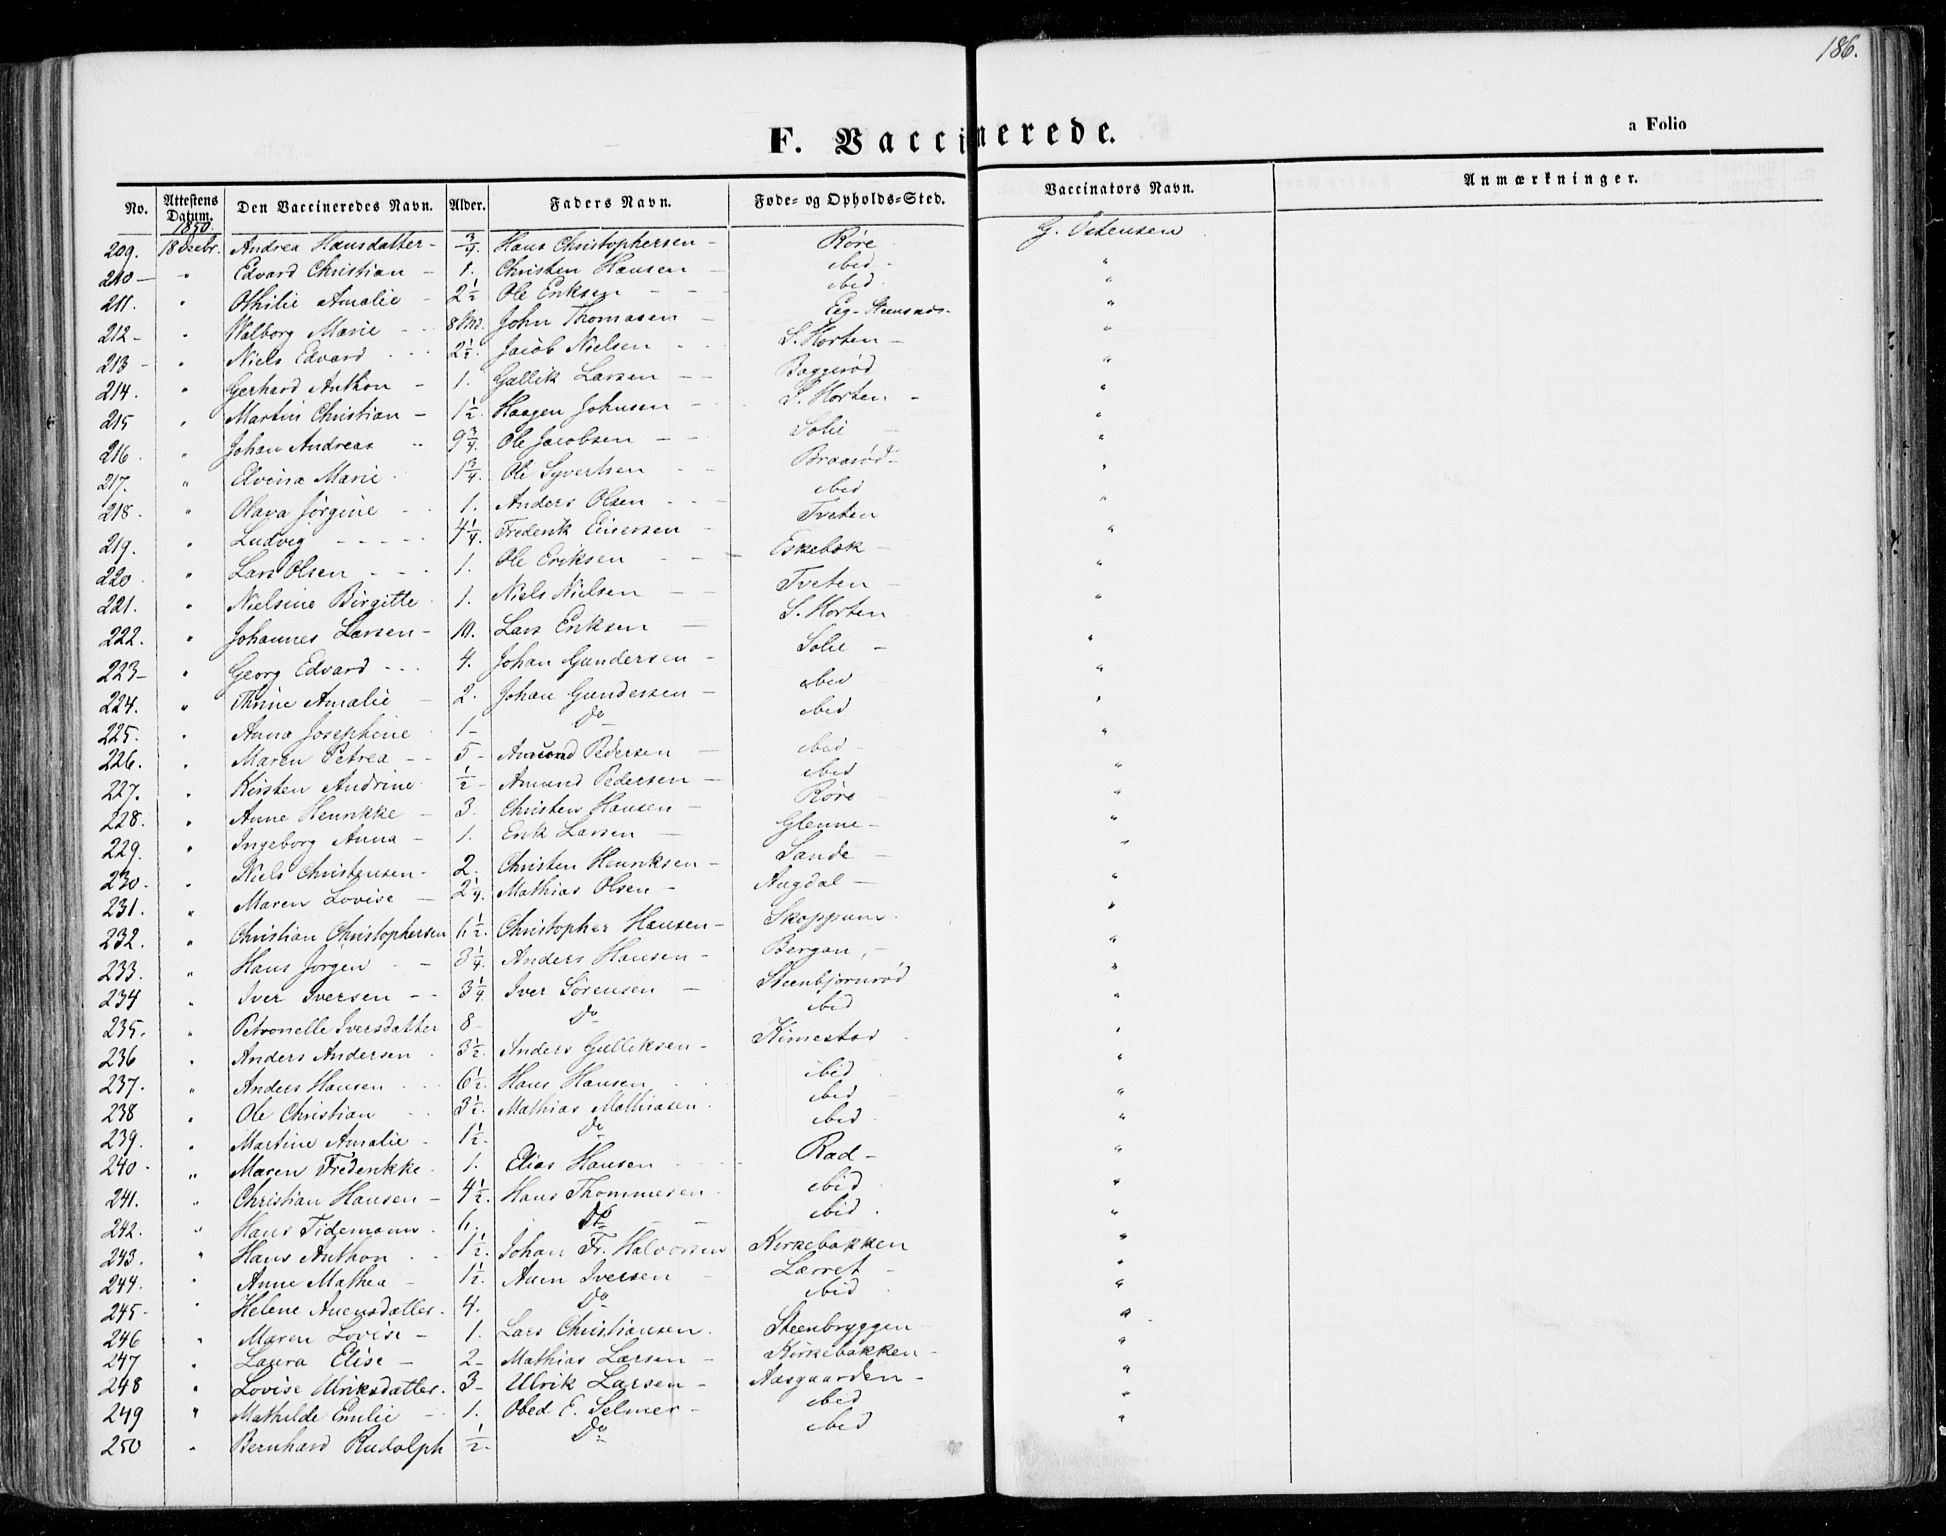 186.
a Folio
F. Vaccinerede.
No. Attestens Datum. Den Vaccineredes Navn. Alder. Faders Navn. Føde- og Opholds-Sted. Vaccinators Navn. Anmærkninger.
1850.
209. 18 Andrea Hansdatter - 3/4. Hans Christophersen - Røre G.
210 - " Edvard Christian - 1. Christen Hansen - ibid - "
211. " Othilie Amalie - 2 1/2 Ole Eriksen - - ibid. "
212 - " Walborg Marie - 8 Md. John Thomasen - Eeg- "
213 - " Niels Edvard - - - 2 1/2. Jacob Nielsen - - S. Horten - "
214. " Gerhard Anthon - 1. Gullik Larsen - - Baggerød "
215 " Martin Christian - 1 1/2. Haagen Johnsen - S. Horten - "
216. " Johan Andreas - 9 3/4. Ole Jacobsen - - Solie - "
217. " Elvina Marie - 1 3/4. Ole Syvertsen - - Braarød - "
218. " Olava Jørgine - 1. Anders Olsen - - - ibid - "
219. " Ludvig - - - - - 4 1/4. Frederik Einersen - Tveten "
220. " Lars Olsen - - - 1. Ole Eriksen - - Eskebæk - "
221. " Nielsine Birgitte. 1. Niels Nielsen - - Tveten - "
222. " Johannes Larsen - 10. Lars Eriksen - S. Horten "
223 - " Georg Edvard - - - 4. Johan Gundersen - Solie - "
224. " Thrine Amalie - 2. Johan Gundersen - ibid "
225. " Anna Josephine 1 - Do ibid "
226. " Maren Petrea - - 5 - Amund Pedersen - ibid - "
227. " Kirsten Andrine 1/2 - Amund Pedersen - ibid "
228. " Anne Henrikke - 3 - Christen Hansen - Røre - "
229. " Ingeborg Anna - 1. Erik Larsen - Glenne - "
230. " Niels Christensen - 2. Christen Henriksen - Sande - "
231. " Maren Lovise - 2 1/4. Mathias Olsen - Augdal - "
232. " Christian Christophersen 6 1/2. Christopher Hansen - Skoppum. "
233. " Hans Jørgen - - 3 1/4. Anders Hansen - Bergan, - "
234 " Iver Iversen - - 3 1/4. Iver Sørensen - Steenbjørnrød "
235. " Petronelle Iversdatter 8 - Do ibid "
236 " Anders Andersen 3 1/2. Anders Gulliksen - Kimestad "
237. " Anders Hansen - - 6 1/2. Hans Hansen ibid "
238 " Ole Christian - 3 1/2. Mathias Mathiasen. ibid - "
239. " Martine Amalie - 1 1/2. Do ibid. "
240 - " Maren Frederikke. 1. Elias Hansen - - Rad - "
241. " Christian Hansen - 4 1/2. Hans Thommesen. ibid "
242. " Hans Tidemann. 6. Do - - ibid. "
243. " Hans Anthon - - 1 1/2. Johan Fr. Halvorsen Kirkebakken "
244. " Anne Mathea - 1 1/2. Auen Iversen - Lærret - "
245 - " Helene Auensdatter. 4. Do ibid. "
246 " Maren Lovise - 1. Lars Christiansen. Steenbryggen "
247 " Laura Elise - 2 - Mathias Larsen - Kirkebakken - "
248 " Lovise Ulriksdatter. 3 - Ulrik Larsen - Aasgaarden - "
249 " Mathilde Emilie - 1. Obed E. Selmer - ibid "
250 " Bernhard Rudolph 1/2 - Do ibid "